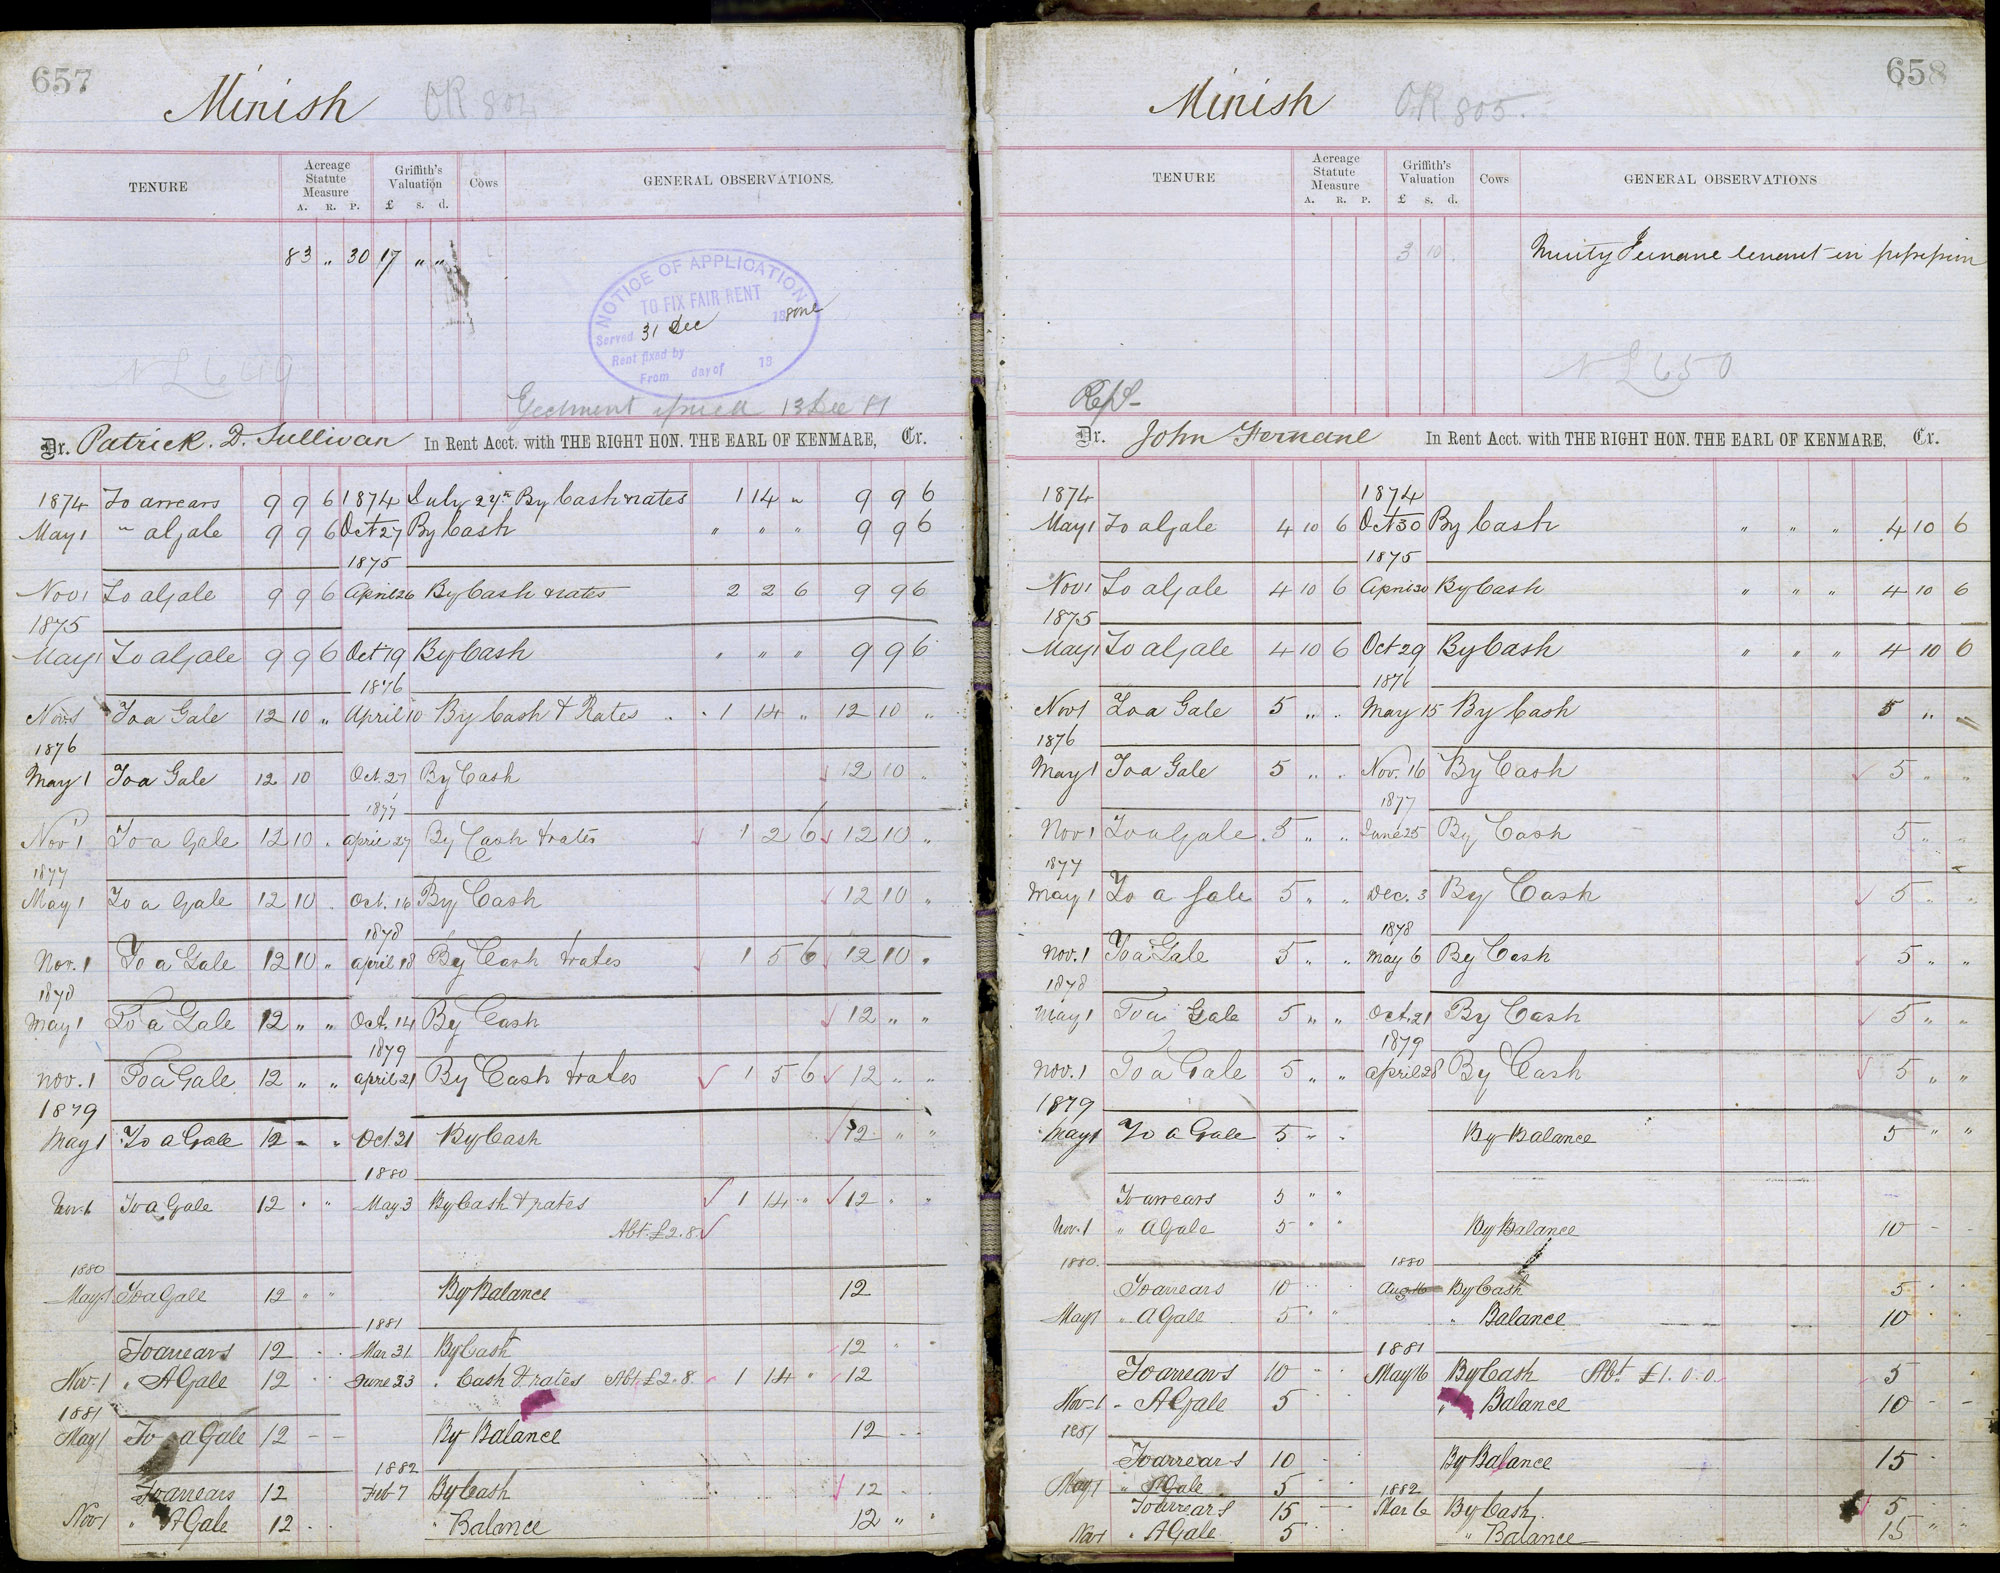 657
Minish OR 804
TENURE
Acreage Statute Measure
A. R. P.
Griffith's Valuation
£ s. d.
Cows
GENERAL OBSERVATIONS.
83 " 30 17 " "
NOTICE OF APPLICATION
TO FIX FAIR RENT
Served 31 Dec 18
Rent fixed by
From day of 18
NL 649
13 Dec 81
Dr. Patrick. D. Sullivan In Rent Acct. with THE RIGHT HON. THE EARL OF KENMARE, Cr.
1874 To arrears 9 9 6 1874 July 27th By Cash & rates 1 14 " 9 9 6
May 1 " a Gale 9 9 6 Oct 27 By Cash " " " 9 9 6
1875
Nov 1 To a Gale 9 9 6 April 26 By Cash & rates 2 2 6 9 9 6
1875
May 1 To a Gale 9 9 6 Oct 19 By Cash " " " 9 9 6
1876
Nov 1 To a Gale 12 10 " April 10 By Cash & Rates 1 14 " 12 10 "
1876
May 1 To a Gale 12 10 Oct. 27 By Cash 12 10 "
1877
Nov 1 To a Gale 12 10 . April 27 By Cash & rates 1 2 6 12 10 "
1877
May 1 To a Gale 12 10 . Oct. 16 By Cash 12 10 "
1878
Nov. 1 To a Gale 12 10 " April 18 By Cash & rates 1 5 6 12 10 "
1878
May 1 To a Gale 12 " " Oct. 14 By Cash 12 " "
1879
Nov. 1 To a Gale 12 " " April 21 By Cash & rates 1 5 6 12 " "
1879
May 1 To a Gale 12 " " Oct. 21 By Cash 12 " "
1880
Nov. 1 To a Gale 12 " " May 3 By Cash & rates 1 14 " 12 " "
Abt. £2.8.
1880
May 1 To a Gale 12 " " By Balance 12
1881
To arrears 12 " " Mar 31. By Cash 12 " "
Nov. 1 " A Gale 12 " " June 23 " Cash & rates Abt £2.8. 1 14 " 12
1881
May 1 To a Gale 12 - - By Balance 12 - -
1882
To arrears 12 Feb 7 By Cash 12
Nov 1 " A Gale 12 " Balance 12 " "
658
Minish OR 805.
TENURE
Acreage Statute Measure
A. R. P.
Griffith's Valuation
£ s. d.
Cows
GENERAL OBSERVATIONS
3 10
Fernane tenant in possession
NL 650
Reps
Dr. John Fernane In Rent Acct. with THE RIGHT HON. THE EARL OF KENMARE, Cr.
1874 1874
May 1 To a Gale 4 10 6 Oct 30 By Cash " " " 4 10 6
1875
Nov 1 To a Gale 4 10 6 April 30 By Cash " " " 4 10 6
1875
May 1 To a Gale 4 10 6 Oct 29 By Cash " " " 4 10 6
1876
Nov 1 To a Gale 5 " " May 15 By Cash 5 " "
1876
May 1 To a Gale 5 " " Nov. 16 By Cash 5 " "
1877
Nov 1 To a Gale 5 " " June 25 By Cash 5 " "
1877
May 1 To a Gale 5 " " Dec. 3 By Cash 5 " "
1878
Nov. 1 To a Gale 5 " " May 6 By Cash 5 " "
1878
May 1 To a Gale 5 " " Oct. 21 By Cash 5 " "
1879
Nov. 1 To a Gale 5 " " April 28 By Cash 5 " "
1879
May 1 To a Gale 5 " " By Balance 5 " "
To arrears 5 " "
Nov. 1 " A Gale 5 " " By Balance 10 - -
1880. 1880
To arrears 10 Aug 16 By Cash 5
May 1 " A Gale 5 " " " Balance 10
1881
To arrears 10 May 16 By Cash Abt. £1.0.0. 5
Nov 1 " A Gale 5 " Balance 10 - -
1881
To arrears 10 By Balance 15
May 1 " A Gale 5 1882
To arrears 15 Mar 6 By Cash 5
Nov 1 " A Gale 5 " Balance 15 " "